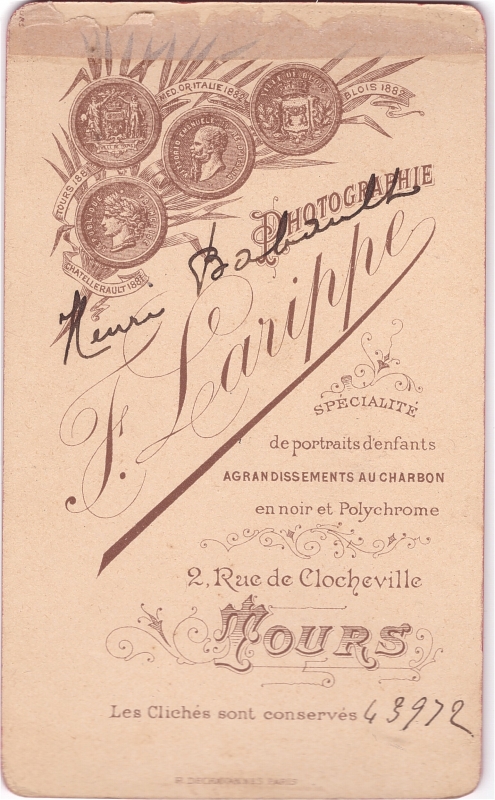 MED. OR. ITALIE 1882
VILLE DE BLOIS
BLOIS 1882
VITTORIO EMANUELE
TOURS 1881
CHATELLERAULT 1881
PHOTOGRAPHIE
Henri
F. Larippe
SPÉCIALITÉ
de portraits d'enfants
AGRANDISSEMENTS AU CHARBON
en noir et Polychrome
2, Rue de Clocheville
TOURS
Les Clichés sont conservés 43972
PARIS